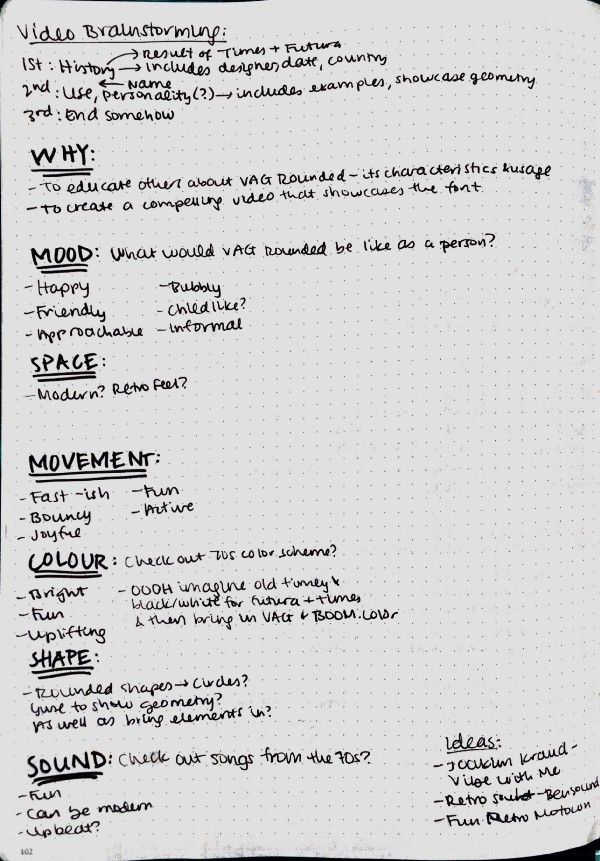 Video Brainstorming:
→ Result of Times + Futura
1st: History → includes designer, date, country
← Name
2nd: Use, personality(?) → includes examples, showcase geometry
3rd: End somehow
WHY:
- To educate others about VAG Rounded - its characteristics & usage
- To create a compelling video that showcases the font
MOOD: What would VAG Rounded be like as a person?
- Happy - Bubbly
- Friendly - Childlike?
- Approachable - Informal
SPACE:
- Modern? Retro Feel?
MOVEMENT:
- Fast-ish - Fun
- Bouncy - Active
- Joyful
COLOUR: Check out 70s color scheme?
- Bright - OOOH imagine old timey &
- Fun black/white for futura + times
- Uplifting & then bring in VAG & BOOM. color
SHAPE:
- Rounded shapes → Circles?
use to show geometry?
As well as bring elements in?
SOUND: Check out songs from the 70s?
- Fun
- Can be modern
- Upbeat?
Ideas:
- Joakim Kraud -
Vibe with Me
- Retro - Bensound
- Fun Retro Motown
102